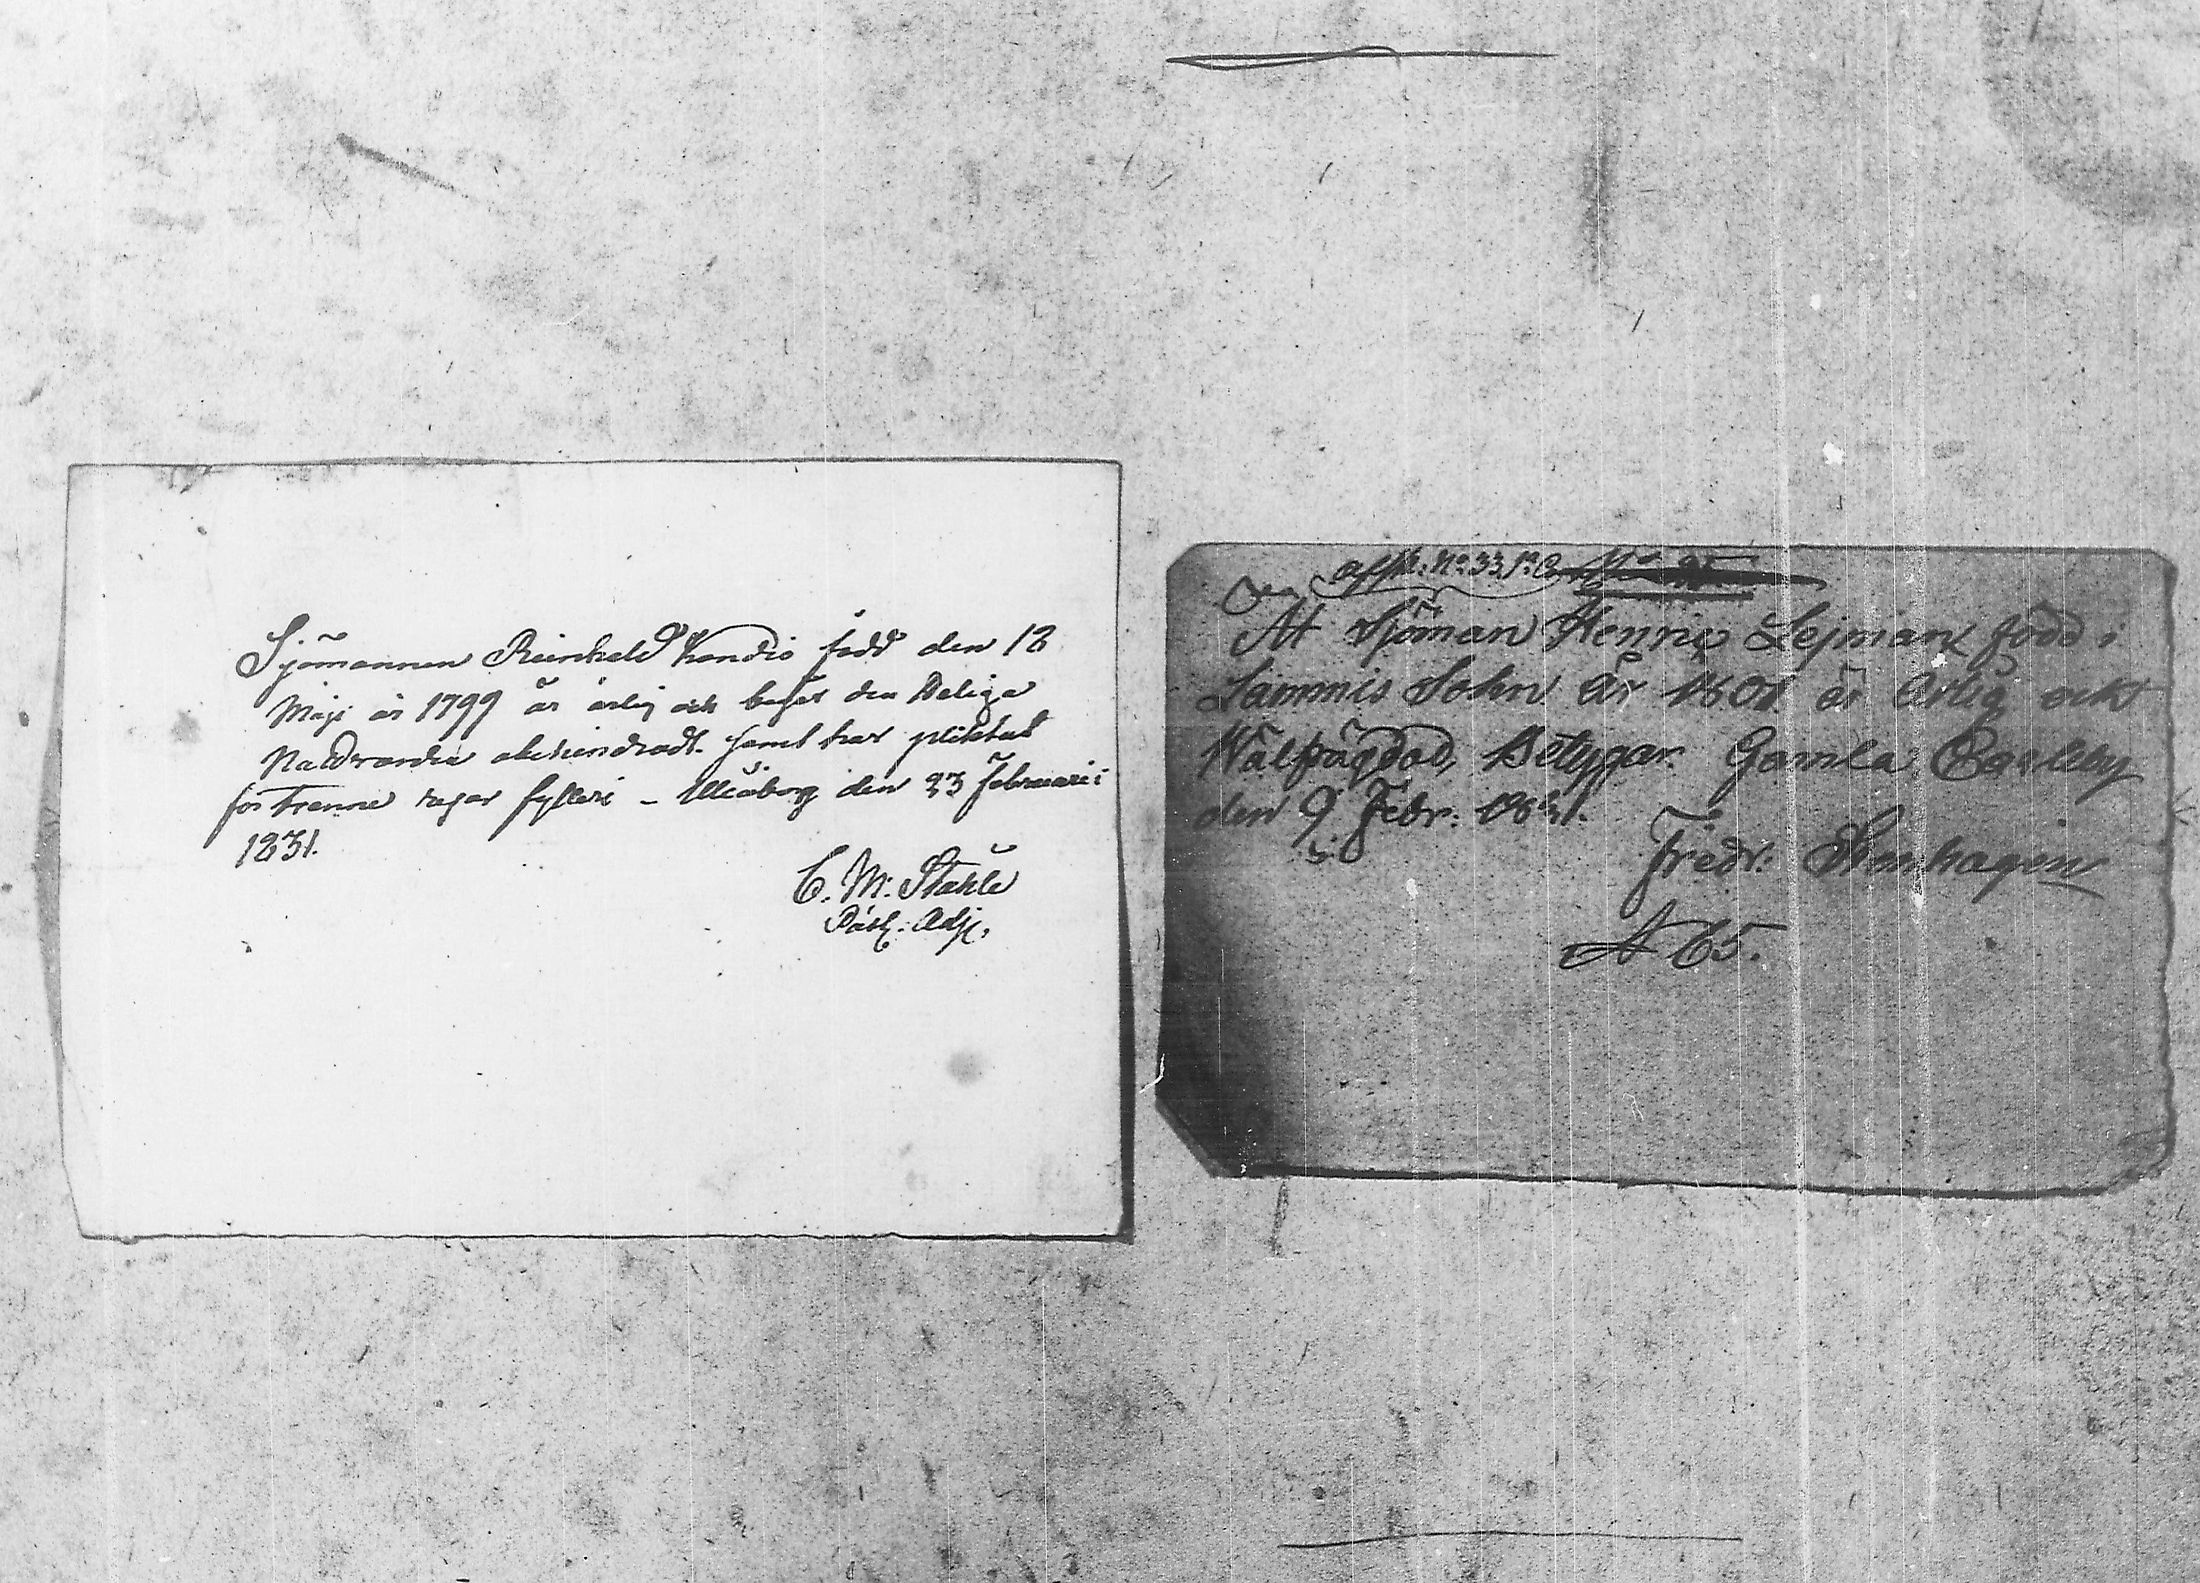 Sjömannen Reinhold Kandis född den 18
Maji år 1799 är ärlig och begår den Heliga
Nattvarden obehindradt. samt har pliktat
för trenne resor fylleri – Uleåborg den 23 Februarii
1831.
C. M. Ståhle
Past. Adj.
afsk. No. 33.
At Sjöman Henric Lejman född i
Sammis Sokn år 1801 är ärlig och
Wälfrägdad, Betygar. Gamla Carleby
den 9 Febr: 1831.
Fredr: Stenhagen
65.